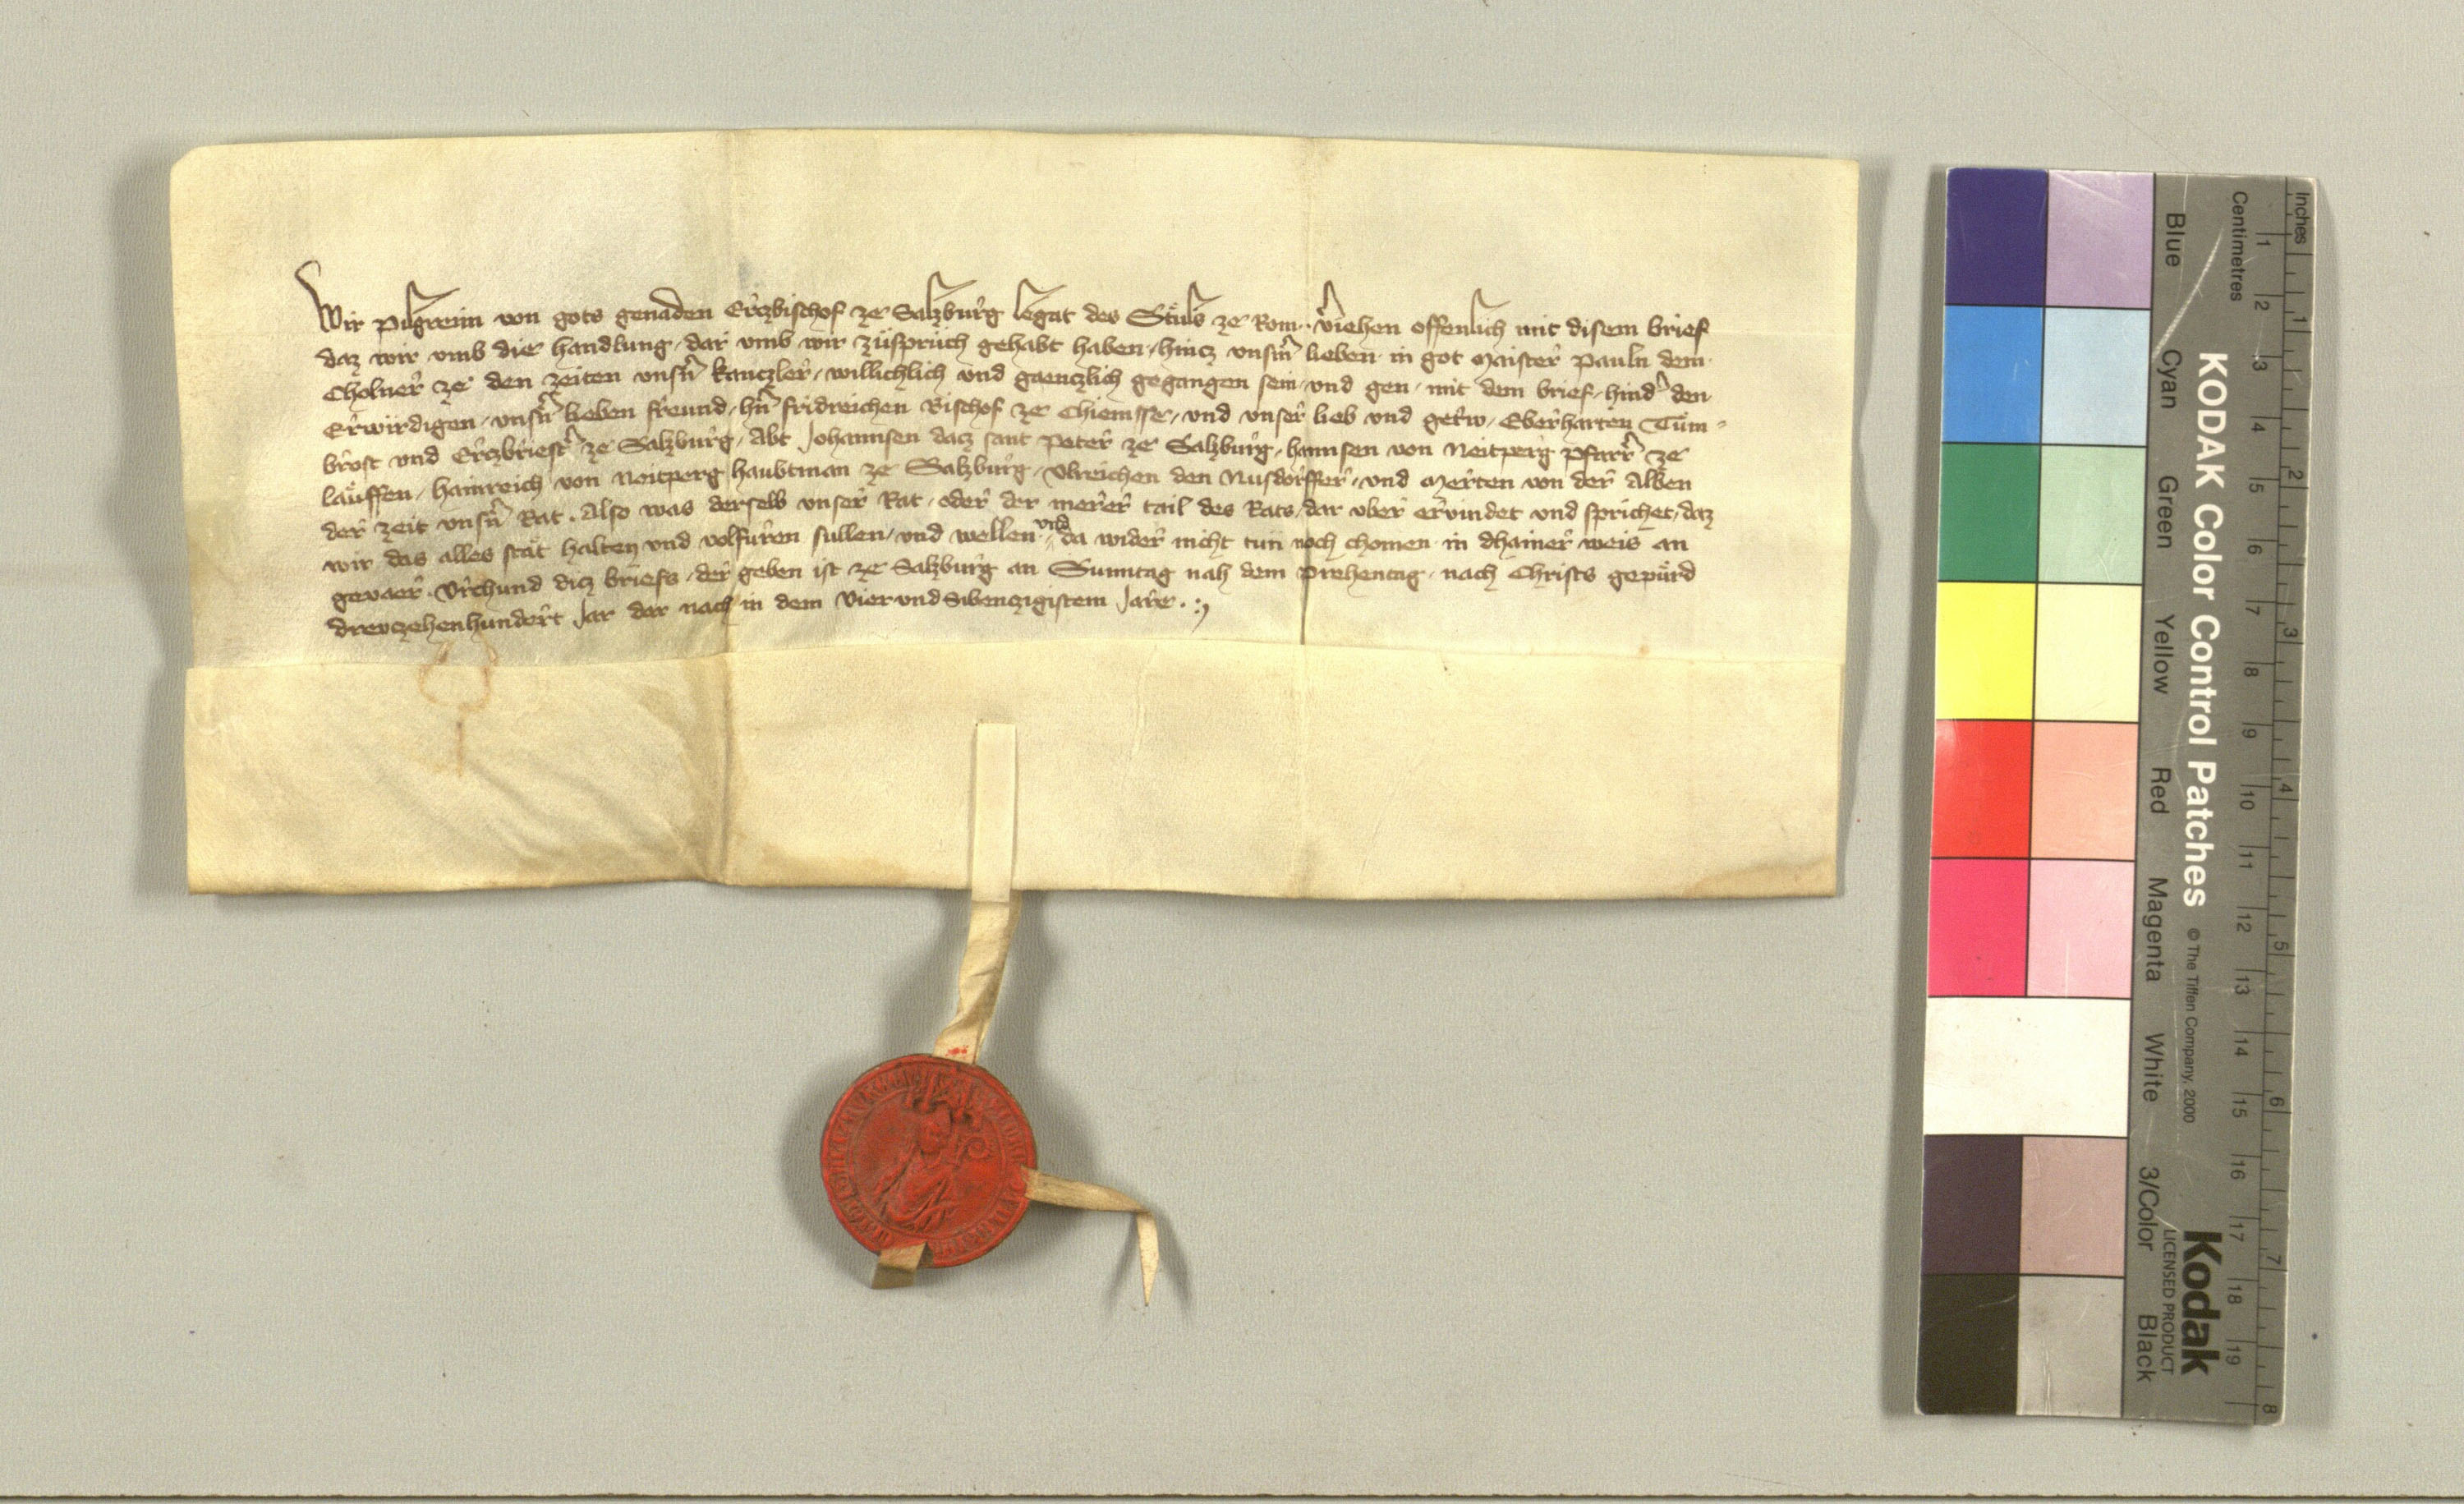 Wir Pilgreim von gots genaden Erczbischof ze Salzburg Legat des Stuls ze Rom. v̂iehen offenlich mit disem brief
daz wir vmb die handlung, dar vmb wir züspruch gehabt haben, hincz vnsm̂ lieben in got Maister Pauln dem
Cholner ze den zeiten vnsn̂ kanczler, willichlich vnd gaenczlich gegangen sein, vnd gen, mit dem brief, hind̂ den
Erwirdigen, vnsn̂ lieben freund, hn̂ fridreichen Bischof ze Chiemsse, vnd vnser lieb vnd getrw, Eberharten Tům-
brost vnd Erczbriest̂ ze Salzburg, Abt Johannsen dacz sant Peter ze Salzburg, hannsen von Neitperg pfarr̂ ze
Lauffen, hainreich von Neitperg haubtman ze Salzburg, Vlreichen den Nusdorffer, vnd Merten von der Alben
der zeit vnsn̂ Rat. Also was derselb vnser Rat, oder der merer tail des Rats, dar vber ervindet vnd sprichet, daz
wir das alles stät halten vnd volfuren sullen, vnd wellen, vnd da wider nicht tün noch chomen in dhainer weis an
gevaer. Vrchund dicz briefs, der geben ist ze Salzburg an Sunntag nah dem Prehentag, nach Christs gepürd
drewczehenhundert Jar dar nach in dem Vier vnd Sibenczigistem Jare.
Inches
Centimetres
1 2 3 4 5 6 7 8 9 10 11 12 13 14 15 16 17 18 19
1 2 3 4 5 6 7 8
KODAK Color Control Patches
© The Tiffen Company, 2000
Kodak
LICENSED PRODUCT
Blue
Cyan
Green
Yellow
Red
Magenta
White
3/Color
Black